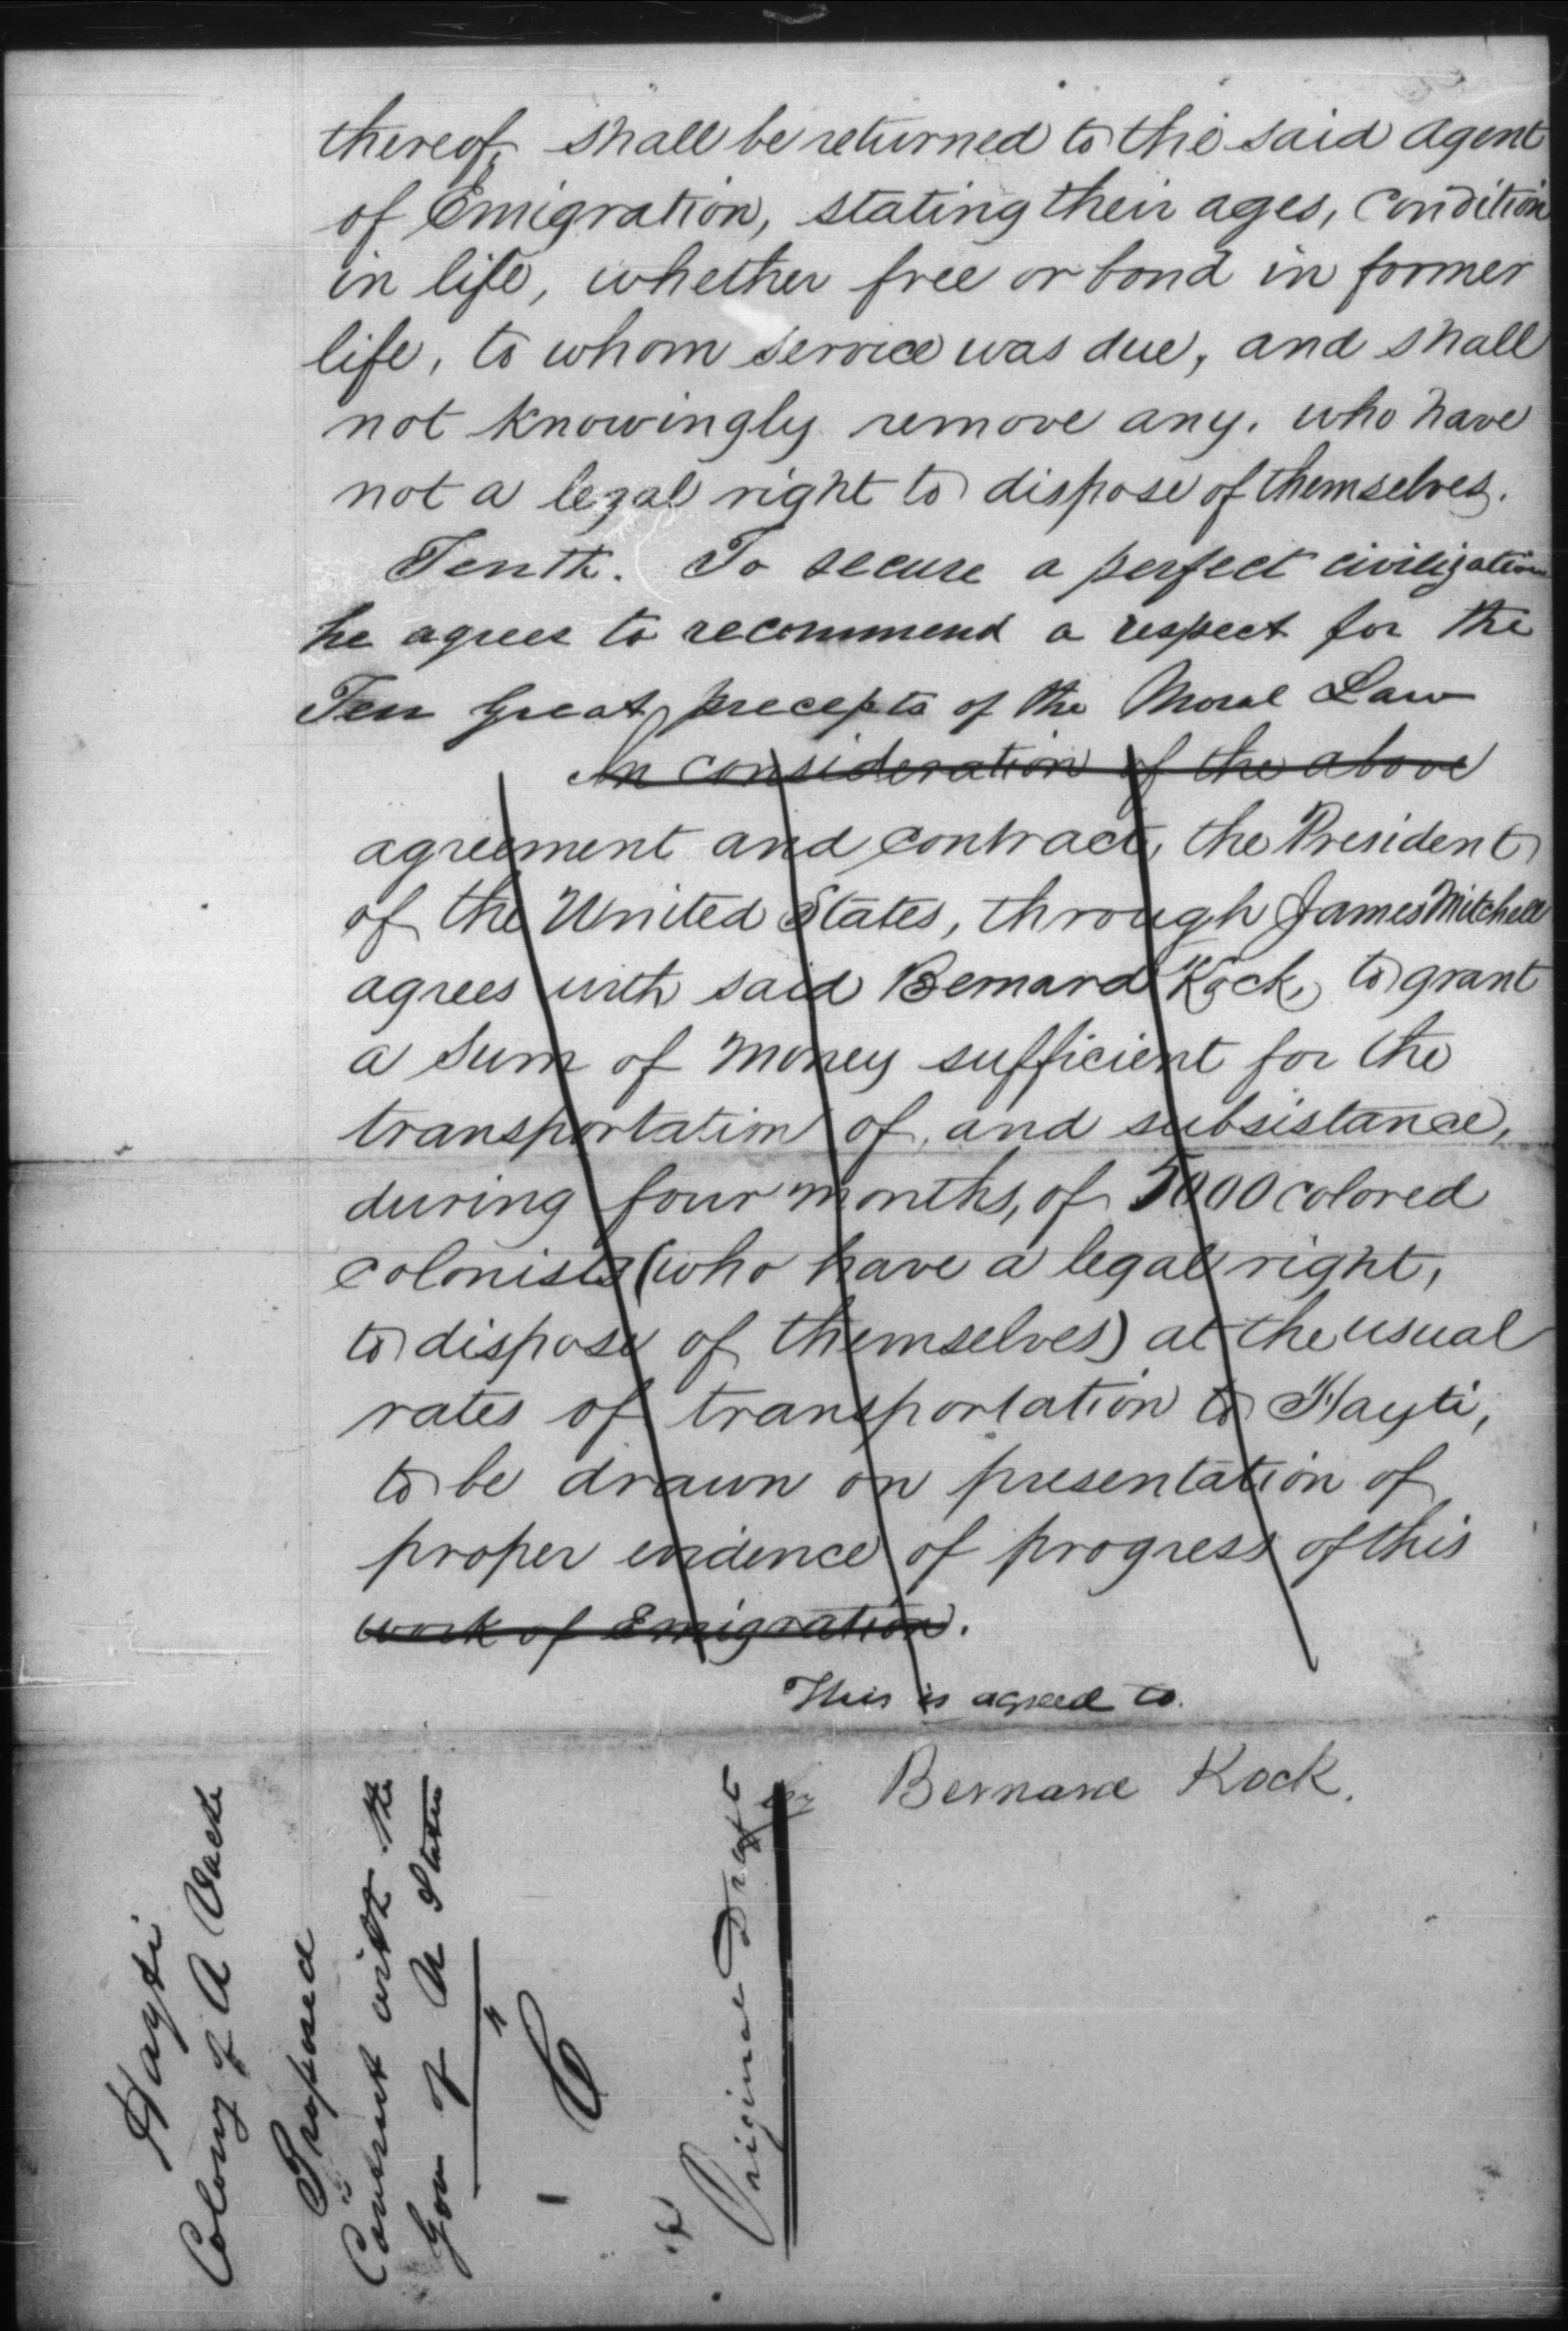 thereof, shall be returned to the said agent
of Emigration, stating their ages, condition
in life, whether free or bond in former
life, to whom service was due, and shall
not knowingly remove any, who have
not a legal right to dispose of themselves.
Tenth. To secure a perfect civilization
he agrees to recommend a respect for the
Ten Great precepts of the Moral Law
In consideration of the above
agreement and contract, the President
of the United States, through James Mitchell
agrees with said Bernard Kock, to grant
a sum of money sufficient for the
transportation of, and subsistance,
during four months, of 5000 colored
colonists (who have a legal right,
to dispose of themselves) at the usual
rates of transportation to Hayti,
to be drawn on presentation of
proper evidence of progress of this
work of Emigration.
This is agreed to.
by Bernard Kock.
Hayti
Colony of A Vache
Proposed
Contract with the
Gov of U States
Original Draft